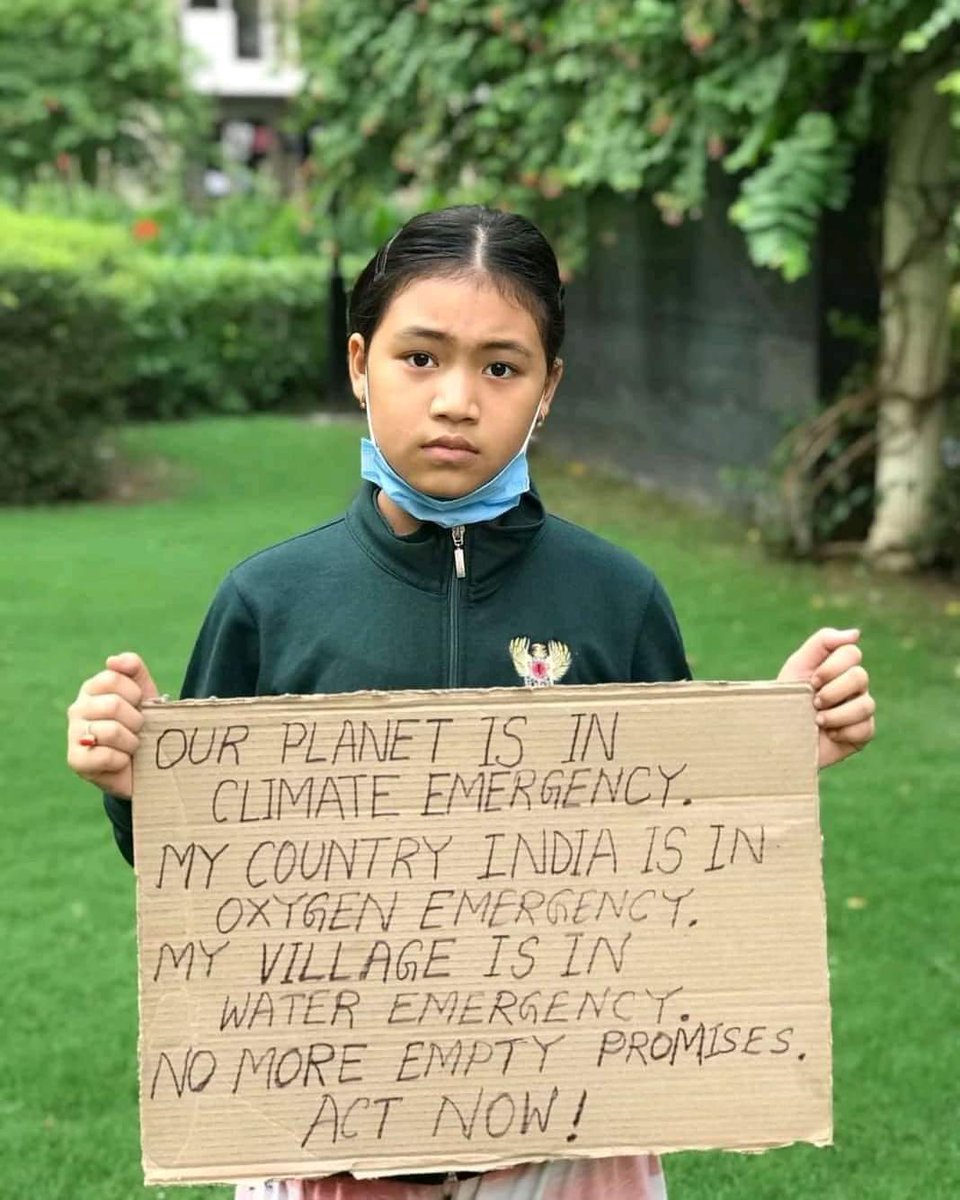 OUR PLANET IS IN
CLIMATE EMERGENCY.
MY COUNTRY INDIA IS IN
OXYGEN EMERGENCY.
MY VILLAGE IS IN
WATER EMERGENCY.
NO MORE EMPTY PROMISES.
ACT NOW!